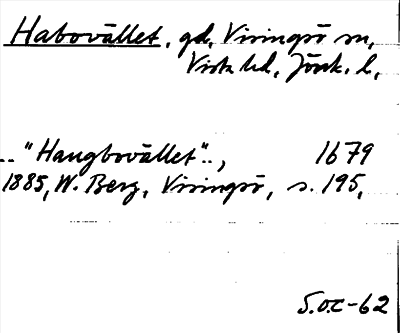 Habovället, gd, Visingsö sn,
Vista hd, Jönk. l,
.. "Haugbovället"..., 1679
1885, W. Berg, Visingsö, s. 195,
S.O.C-62